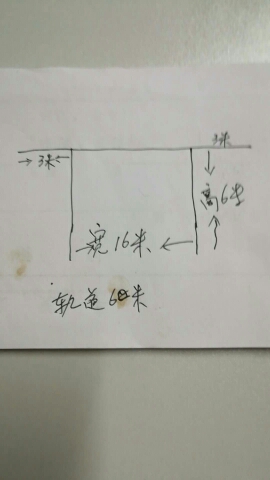 3米
→3米←
高6米
宽16米
轨道60米